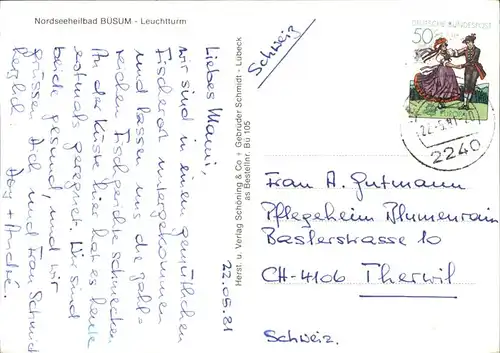 Nordseeheilbad BÜSUM - Leuchtturm
22.05.81
Liebes Mami,
wir sind in einem gemütlichen
Fischerort untergekommen
und lassen uns die zahl-
reichen Fischgerichte schmecken
An der Küste hier hat es heute
erstmals geregnet. Wir sind
beide gesund, und wir
grüssen Dich und Frau Schmid
herzlich!
+ André.
Herst. u. Verlag Schöning & Co + Gebrüder Schmidt - Lübeck
as Bestellnr. Bü 105
Schweiz
DEUTSCHE BUNDESPOST
50
22.-5.81
2240
Frau A. Gutmann
Pflegeheim Blumenrain
Baslerstrasse 10
CH-4106 Therwil
Schweiz.